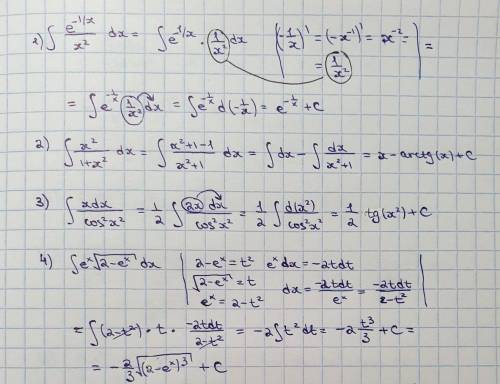 1) ∫ e^(-1/x)/x² dx = ∫ e^(-1/x) · 1/x² dx | (-1/x)' = (-x^(-1))' = x^(-2) = | =
= 1/x²
= ∫ e^(-1/x) 1/x² dx = ∫ e^(-1/x) d(-1/x) = e^(-1/x) + C
2) ∫ x²/(1+x²) dx = ∫ (x²+1-1)/(x²+1) dx = ∫ dx - ∫ dx/(x²+1) = x - arctg(x) + C
3) ∫ xdx/(cos²x²) = 1/2 ∫ 2x dx/(cos²x²) = 1/2 ∫ d(x²)/(cos²x²) = 1/2 tg(x²) + C
4) ∫ eˣ √(2-eˣ) dx | 2-eˣ = t² eˣ dx = -2tdt |
√(2-eˣ) = t dx = -2tdt/eˣ = -2tdt/(2-t²)
eˣ = 2-t²
= ∫ (2-t²) · t · -2tdt/(2-t²) = -2∫ t² dt = -2 t³/3 + C =
= -2/3 √((2-eˣ)³) + C